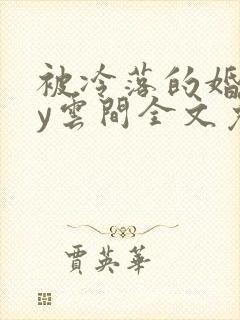 被冷落的婚
y雲間全文
賈英華